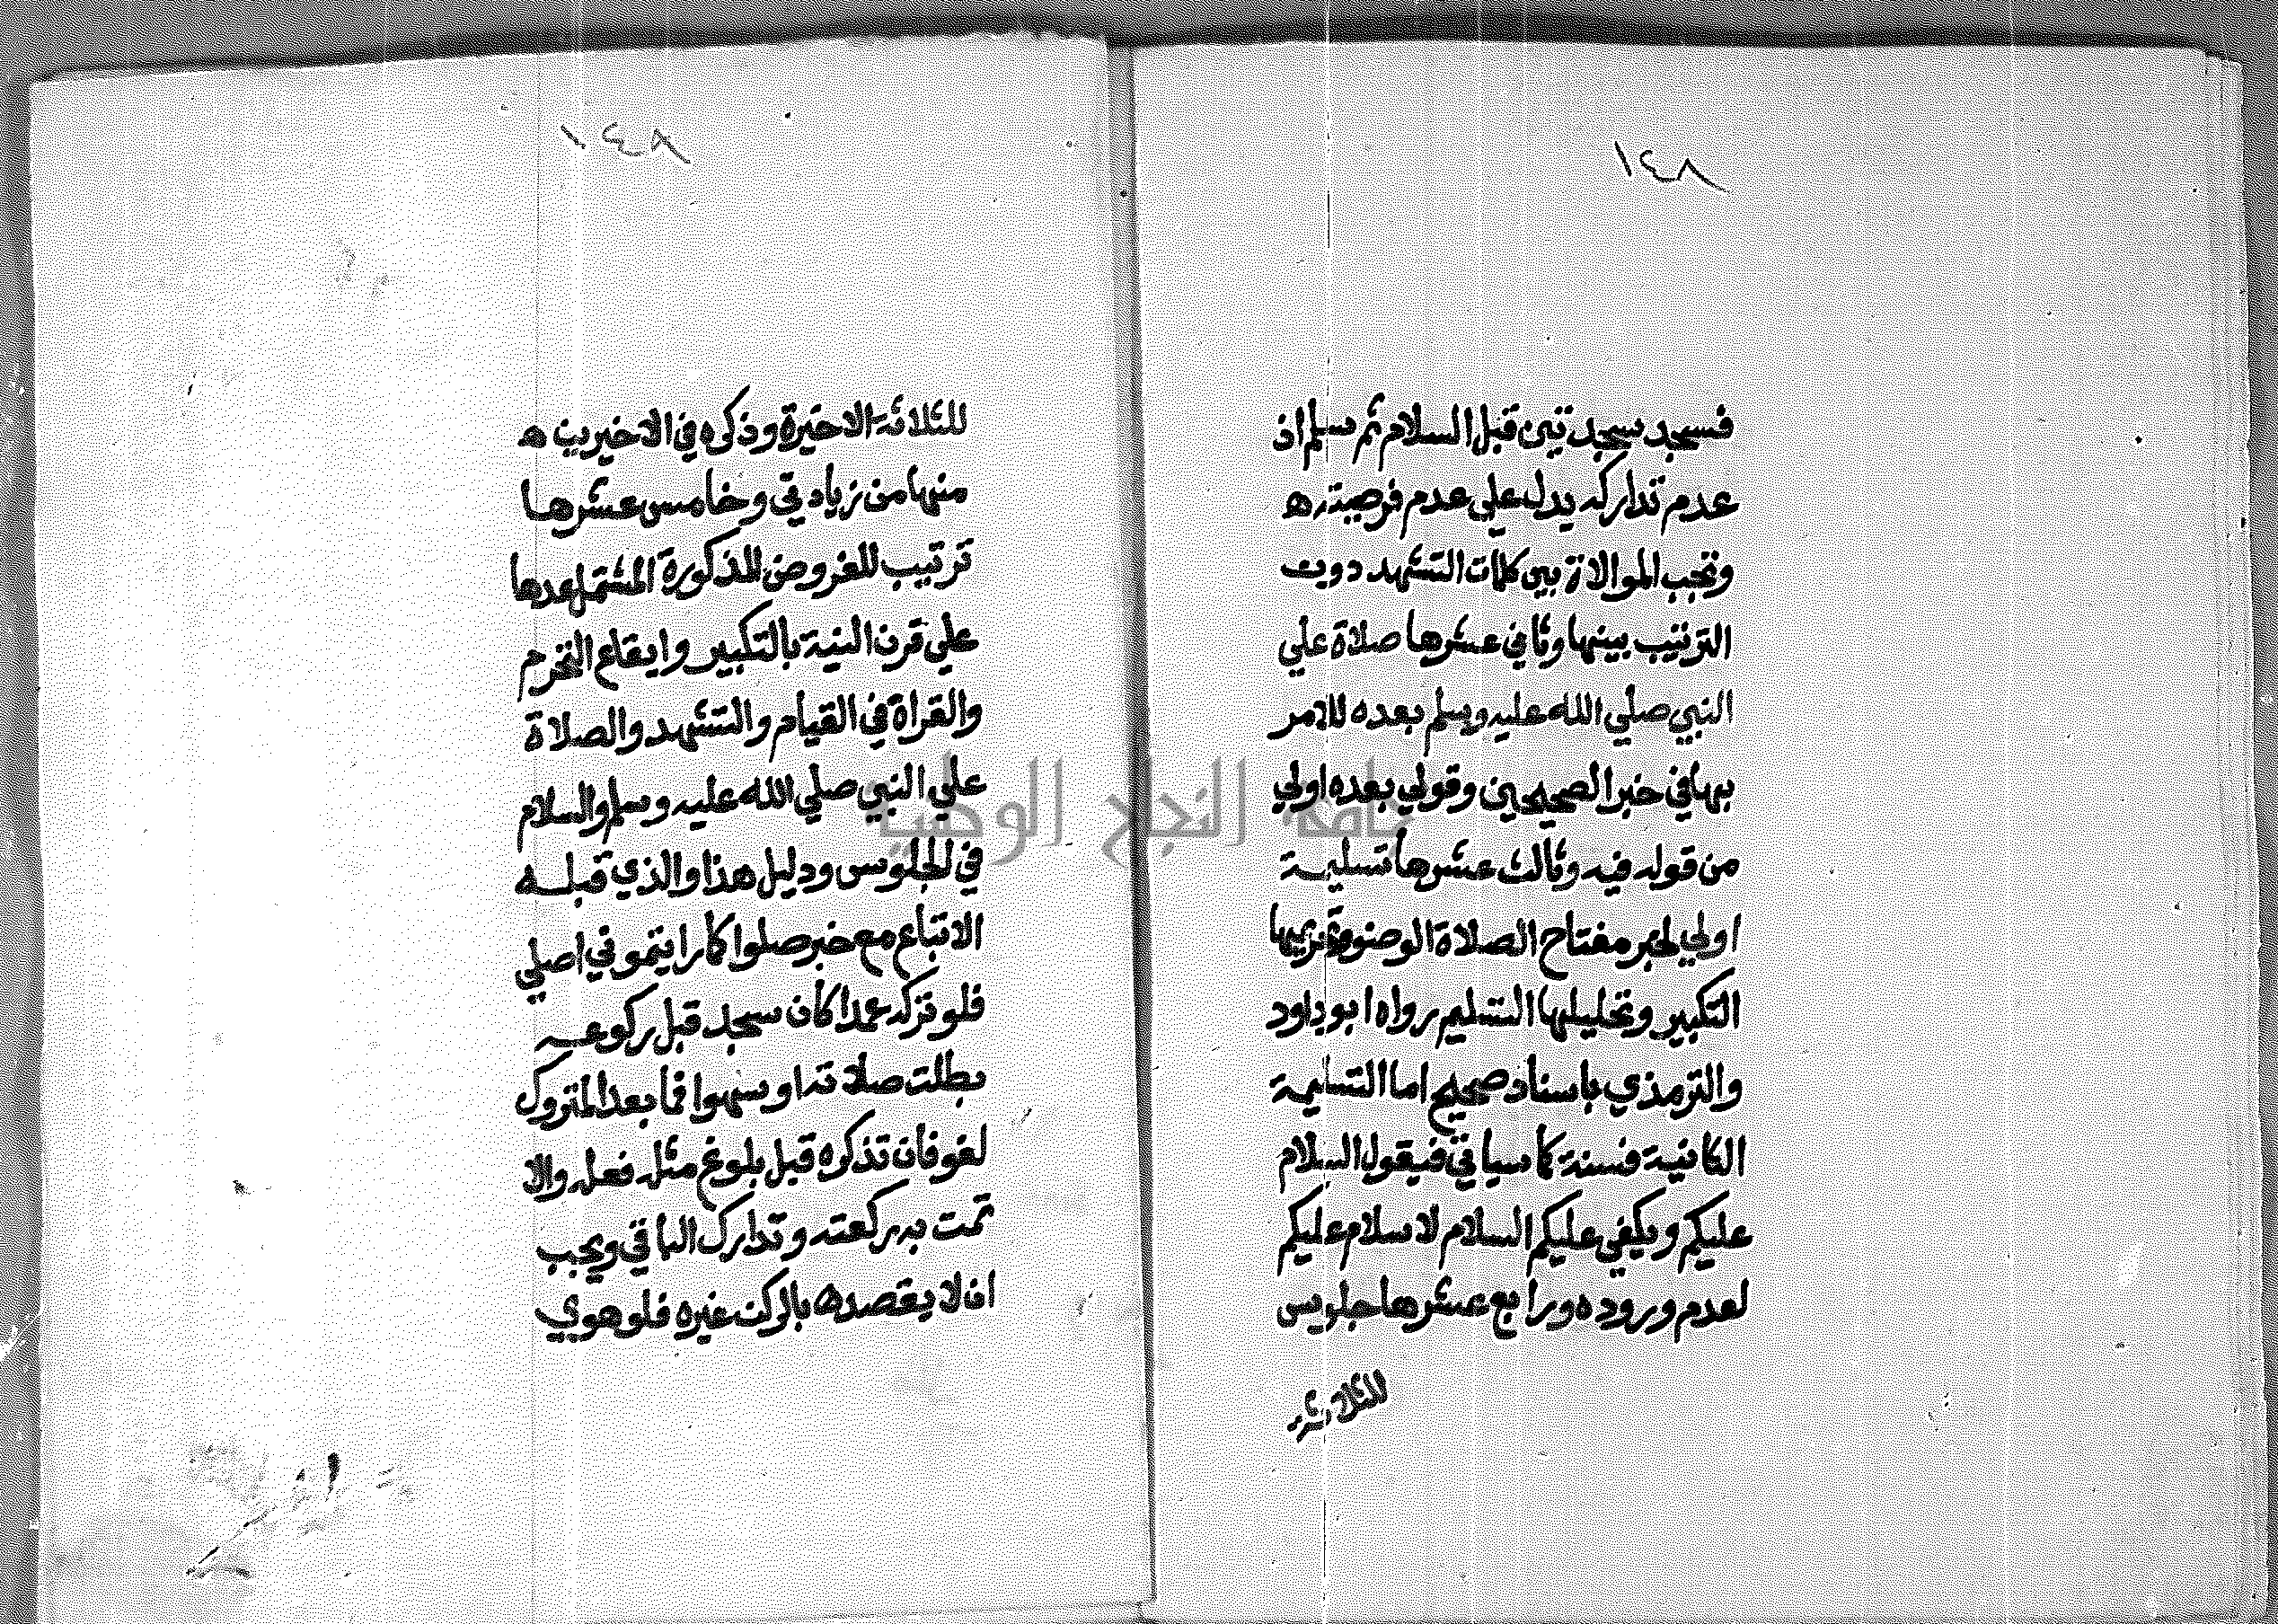 فسجد سجدتين قبل السلام ثم سلم اذ
عدم تداركه يدل علي عدم فرضيته
وتجب الموالاة بين كلمات التشهد دون
الترتيب بينها وثاني عشرها صلاة علي
النبي صلي الله عليه وسلم بعده للامر
بها في خبر الصحيحين وقولي بعده اولي
من قوله فيه وثالث عشرها تسليمة
اولي لخبر مفتاح الصلاة الوضو وتحريمها
التكبير وتحليلها التسليم رواه ابو داود
والترمذي باسناد صحيح اما التسليمة
الثانية فسنة كما سياتي فيقول السلام
عليكم ويكفي عليكم السلام لا سلام عليكم
لعدم وروده ورابع عشرها جلوس
للثلاثة
للثلاثة الاخيرة وذكره في الاخيرين
منها من زيادتي وخامس عشرها
ترتيب للفروض المذكورة المشتمل عدها
علي قرن النية بالتكبير وايقاع التحرم
والقراة في القيام والتشهد والصلاة
علي النبي صلي الله عليه وسلم والسلام
في الجلوس ودليل هذا والذي قبله
الاتباع مع خبر صلوا كما رايتموني اصلي
فلو تركه عمدا كان سجد قبل ركوعه
بطلت صلاته او سهوا فما بعد المتروك
لغو فان تذكره قبل بلوغ مثله فعله والا
تمت به ركعته وتدارك الباقي ويجب
ان لا يقصد بالركن غيره فلو هوي
جامعة النجاح الوطنية